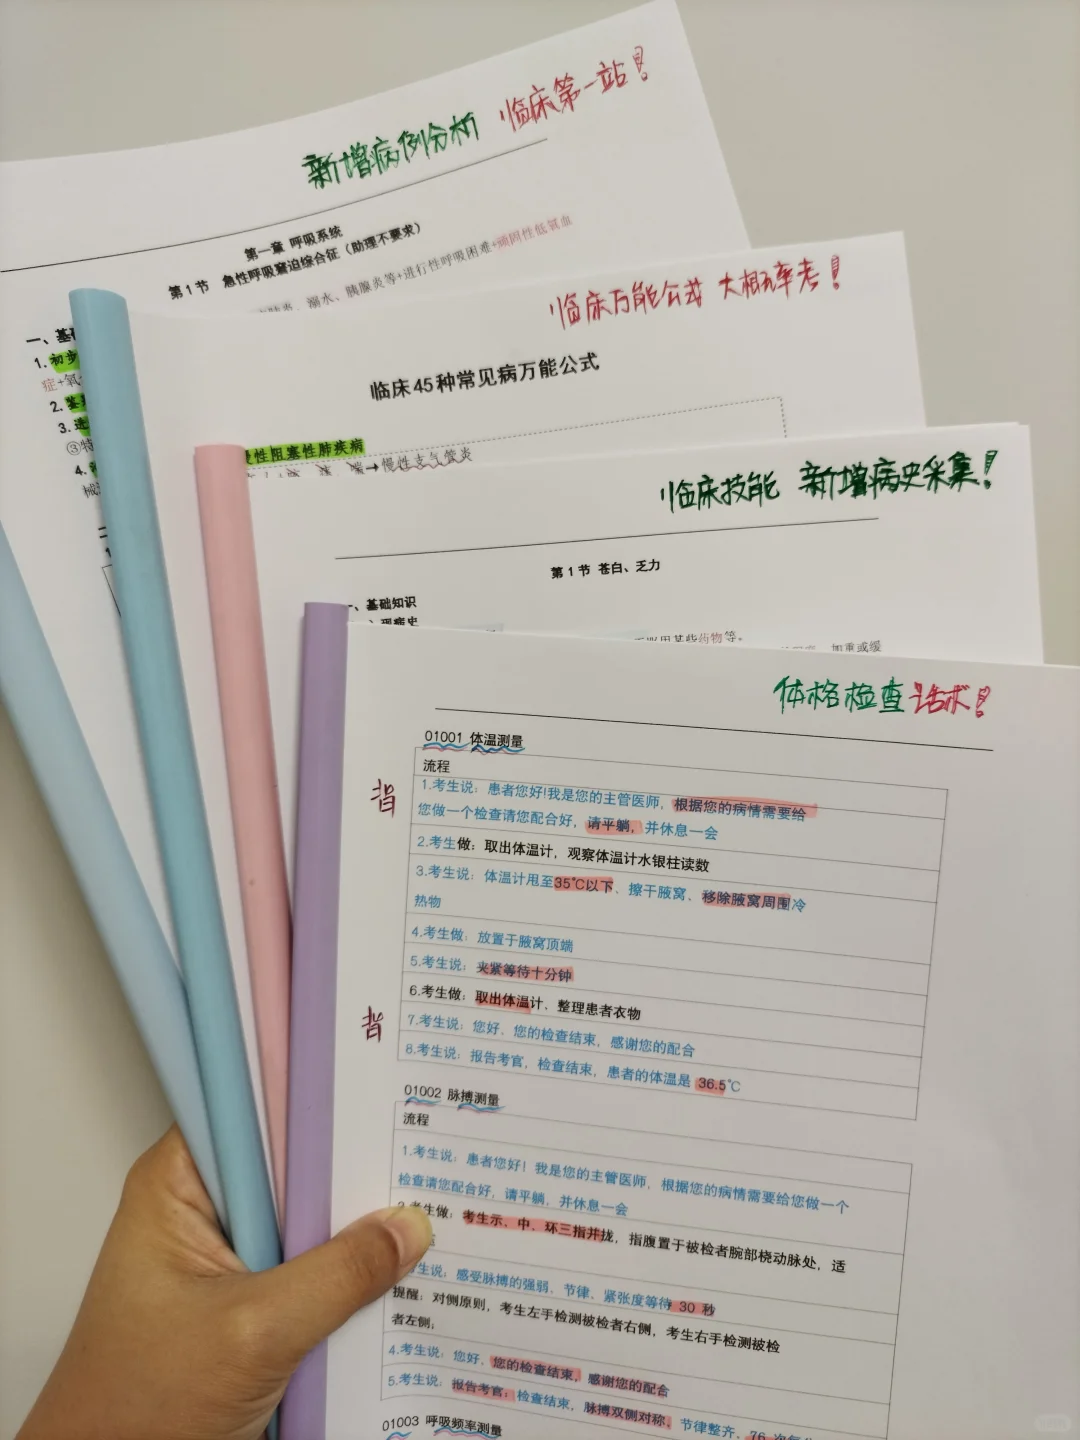 新增病例分析 临床第一站!
第一章 呼吸系统
第1节 急性呼吸窘迫综合征（助理不要求）
溺水、胰腺炎等+进行性呼吸困难+顽固性低氧血
一、基
1.初步
症+氧
2.
3.
③特
4.
临床万能公式 大概率考!
临床45种常见病万能公式
慢性阻塞性肺疾病
→慢性支气管炎
临床技能 新增病史采集!
第1节 苍白、乏力
一、基础知识
现病史
用某些药物等。
加重或缓
体格检查话术!
01001 体温测量
流程
背
1.考生说：患者您好!我是您的主管医师，根据您的病情需要给
您做一个检查请您配合好，请平躺，并休息一会
2.考生做：取出体温计，观察体温计水银柱读数
3.考生说：体温计甩至35℃以下、擦干腋窝、移除腋窝周围冷
热物
4.考生做：放置于腋窝顶端
5.考生说：夹紧等待十分钟
6.考生做：取出体温计、整理患者衣物
背
7.考生说：您好、您的检查结束，感谢您的配合
8.考生说：报告考官，检查结束，患者的体温是 36.5℃
01002 脉搏测量
流程
1.考生说：患者您好！我是您的主管医师，根据您的病情需要给您做一个
检查请您配合好，请平躺，并休息一会
考生做：考生示、中、环三指并拢，指腹置于被检者腕部桡动脉处，适
生说：感受脉搏的强弱、节律、紧张度等待 30 秒
提醒：对侧原则，考生左手检测被检者右侧，考生右手检测被检
者左侧；
4.考生说：您好、您的检查结束，感谢您的配合
5.考生说：报告考官：检查结束，脉搏双侧对称，节律整齐，76
01003 呼吸频率测量